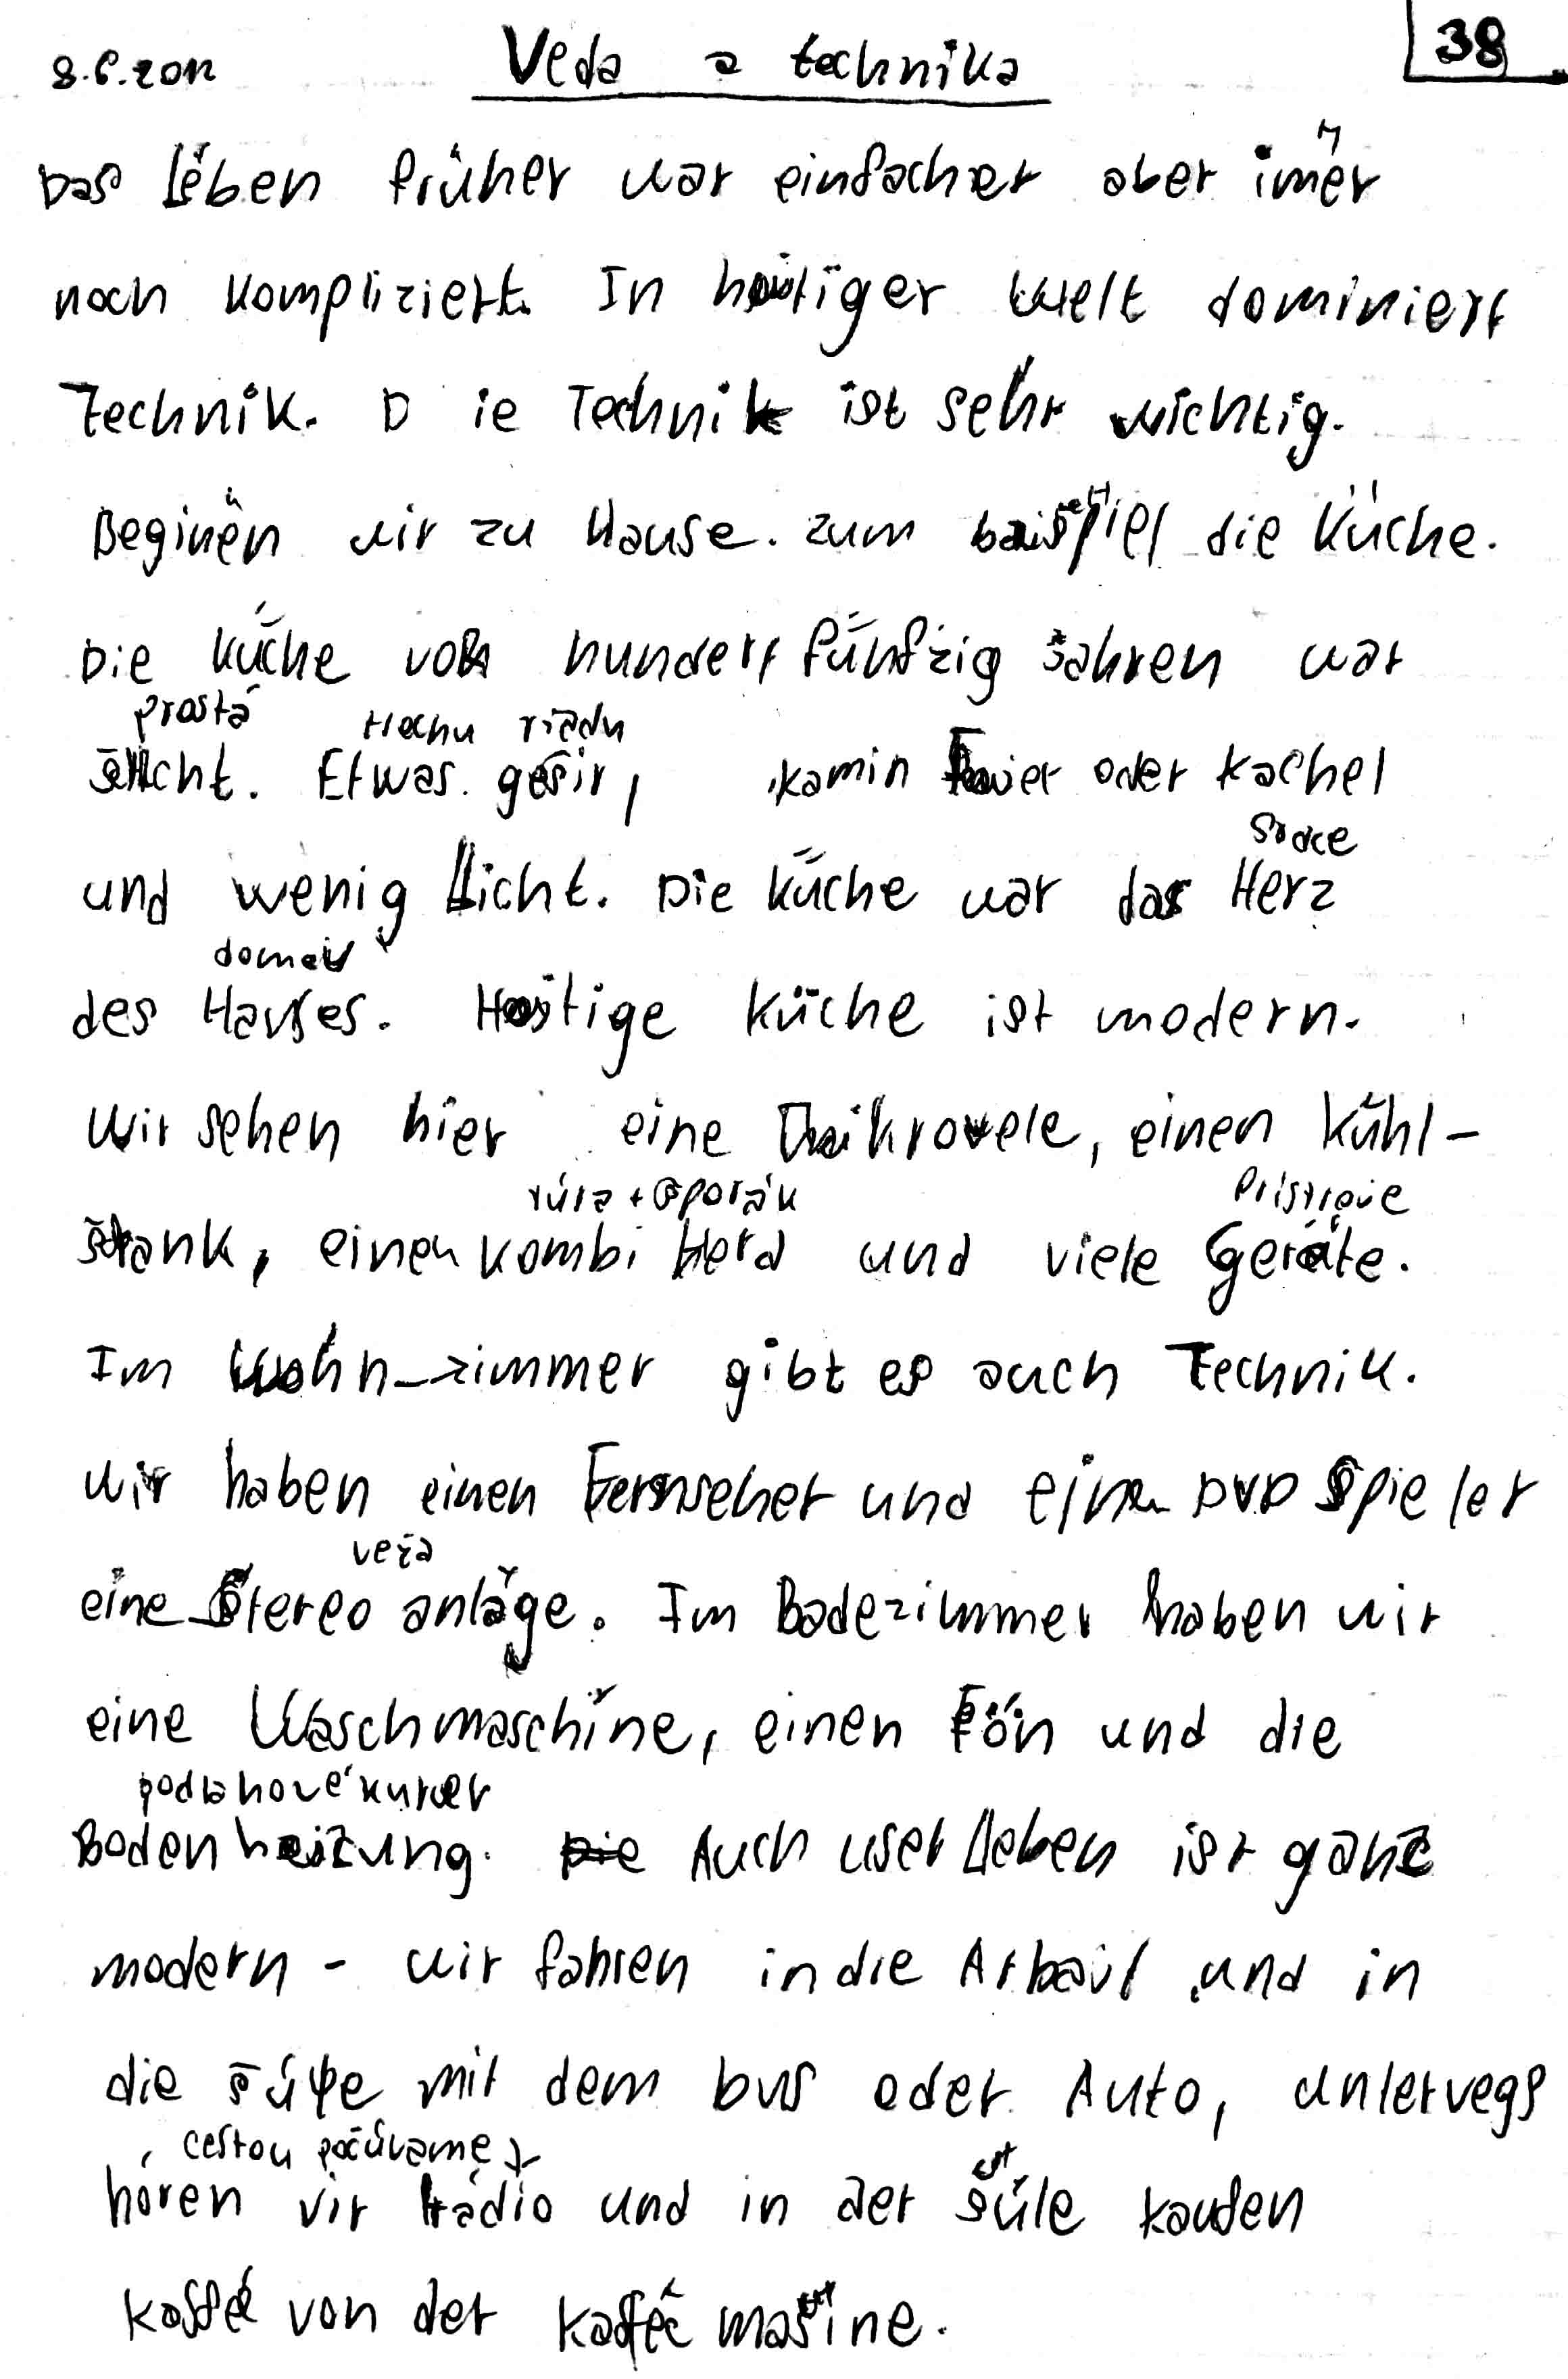 8.6.2012 Veda a technika 38
Das Lében früher war einfacher aber imer
noch kompliziert. In heutiger Welt dominiert
Technik. Die Technik ist sehr wichtig.
Beginen wir zu Hause. zum beispiel die Küche.
Die Küche von hundert fünfzig Jahren war
prostá trochu riadu
šlicht. Etwas gešir, kamin Feuer oder kachel
srdce
und wenig Licht. Die Küche war das Herz
domov
des Hauses. Heutige Küche ist modern.
Wir sehen hier eine Mikrovele, einen Kühl-
rúra + šporák prístroje
šrank, einen kombi Herd und viele Geräte.
Im Wohn-zimmer gibt es auch Technik.
wir haben einen Fernseher und einen DVD Spieler
veža
eine Stereo anláge. Im Badezimmer haben wir
eine Waschmaschíne, einen Fön und die
podlahové kúrenie
Bodenheizung. Die Auch unser Leben ist ganz
modern - wir fahren in die Arbeit und in
die šúle mit dem bus oder Auto, untervegs
cestou počúvame
hören vir rádio und in der šúle kaufen
kaffé von der kaffeé mašine.